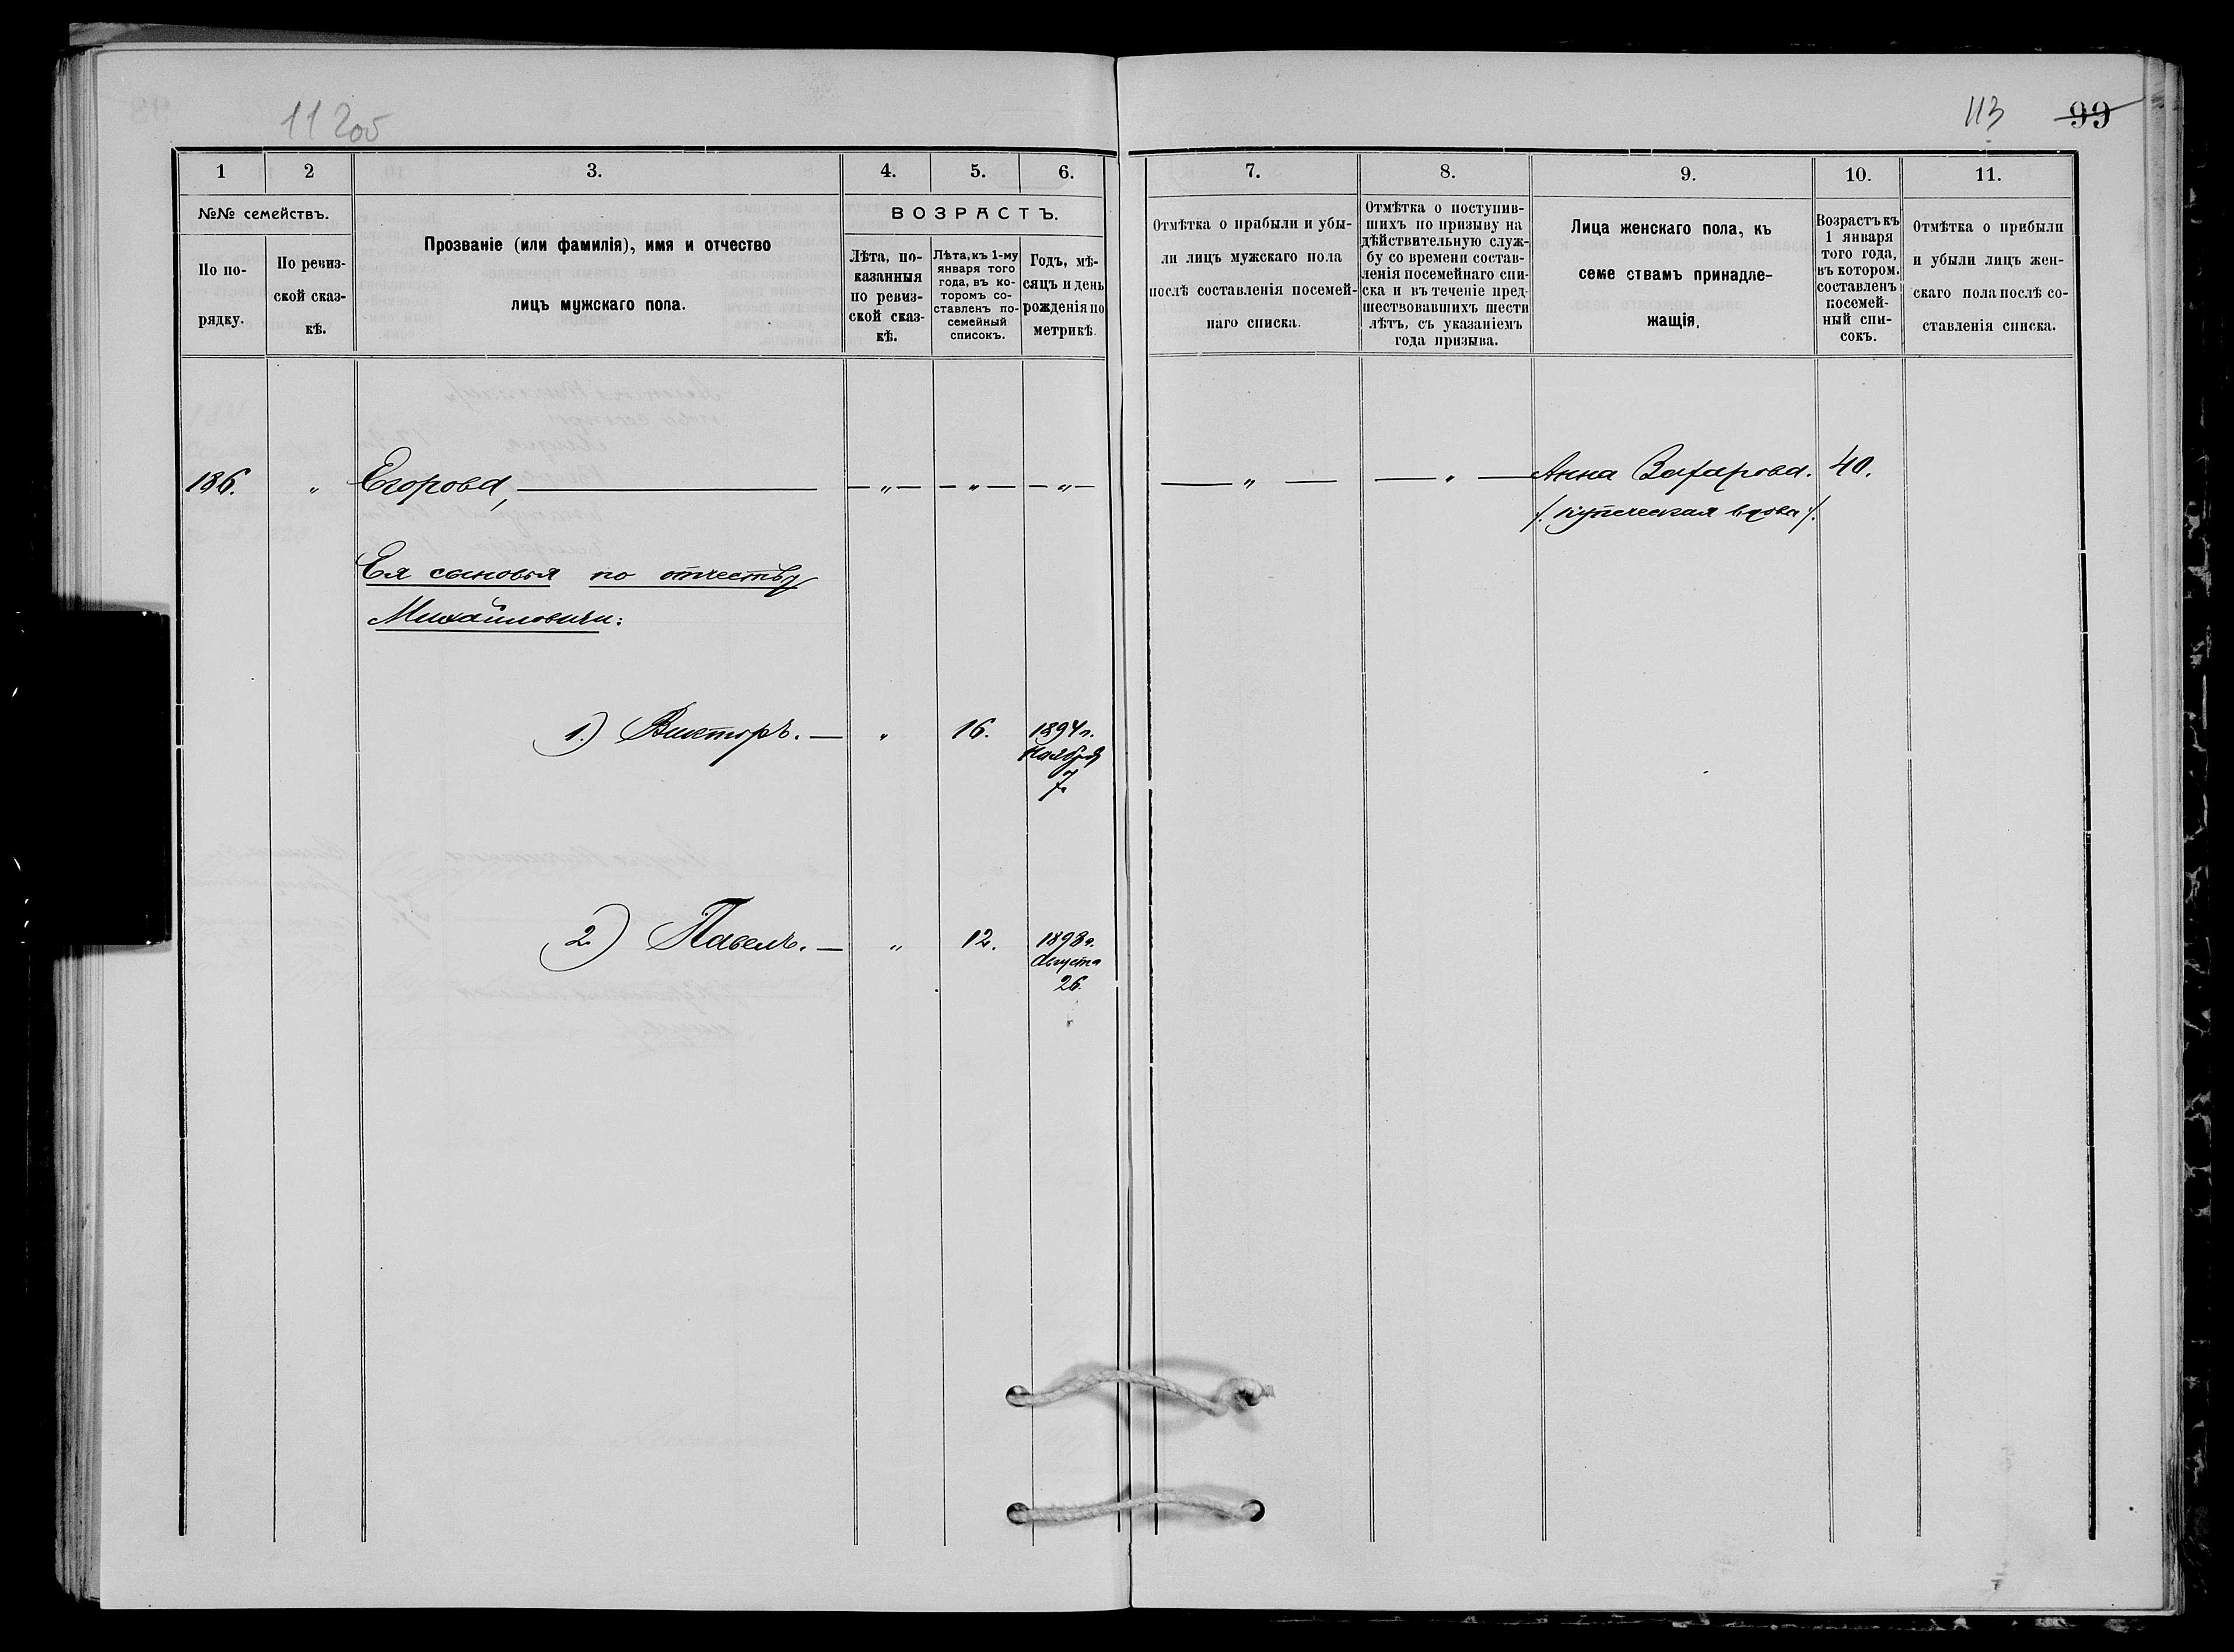 11 200
113 99
1 2 3. 4. 5. 6. 7. 8. 9. 10. 11.
№№ семействъ.
По по-
рядку.
По ревиз-
ской сказ-
кѣ.
Прозваніе (или фамилія), имя и отчество
лицъ мужскаго пола.
ВОЗРАСТЪ.
Лѣта, по-
казанныя
по ревиз-
ской сказ-
кѣ.
Лѣта, къ 1-му
января того
года, въ ко-
торомъ со-
ставленъ по-
семейный
списокъ.
Годъ, мѣ-
сяцъ и день
рожденія по
метрикѣ.
Отмѣтка о прибыли и убы-
ли лицъ мужскаго пола
послѣ составленія посемей-
наго списка.
Отмѣтка о поступив-
шихъ по призыву на
дѣйствительную служ-
бу со времени состав-
ленія посемейнаго спи-
ска и въ теченіе пред-
шествовавшихъ шести
лѣтъ, съ указаніемъ
года призыва.
Лица женскаго пола, къ
семе ствамъ принадле-
жащія.
Возрастъ къ
1 января
того года,
въ котором.
составленъ
посемей-
ный спи-
сокъ.
Отмѣтка о прибыли
и убыли лицъ жен-
скаго пола послѣ со-
ставленія списка.
186. " Егорова, — — " — — " — — " — — " — — " — Анна Захарова. 40.
/. купеческая вдова /.
Ея сыновья по отчеству
Михайловичи:
1.) Викторъ. — " 16. 1894 г.
Ноября
7.
2) Павелъ. — " 12. 1898 г.
Августа
26.